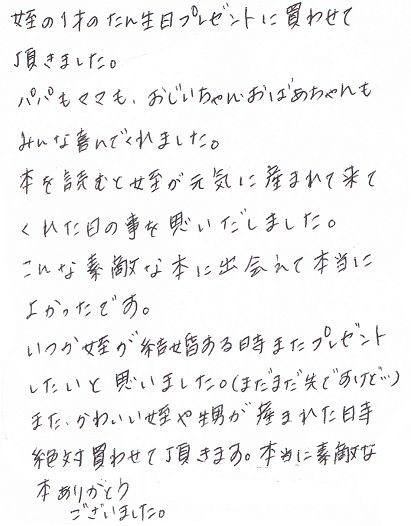 姪の1才のたん生日プレゼントに買わせて
頂きました。
パパもママも、おじいちゃんおばあちゃんも
みんな喜んでくれました。
本を読むと姪が元気に産まれて来て
くれた日の事を思いだしました。
こんな素敵な本に出会えて本当に
よかったです。
いつか姪が結婚する時またプレゼント
したいと思いました。(まだまだ先ですけど…)
また、かわいい姪や甥が産まれた時
絶対買わせて頂きます。本当に素敵な
本ありがとう
ございました。